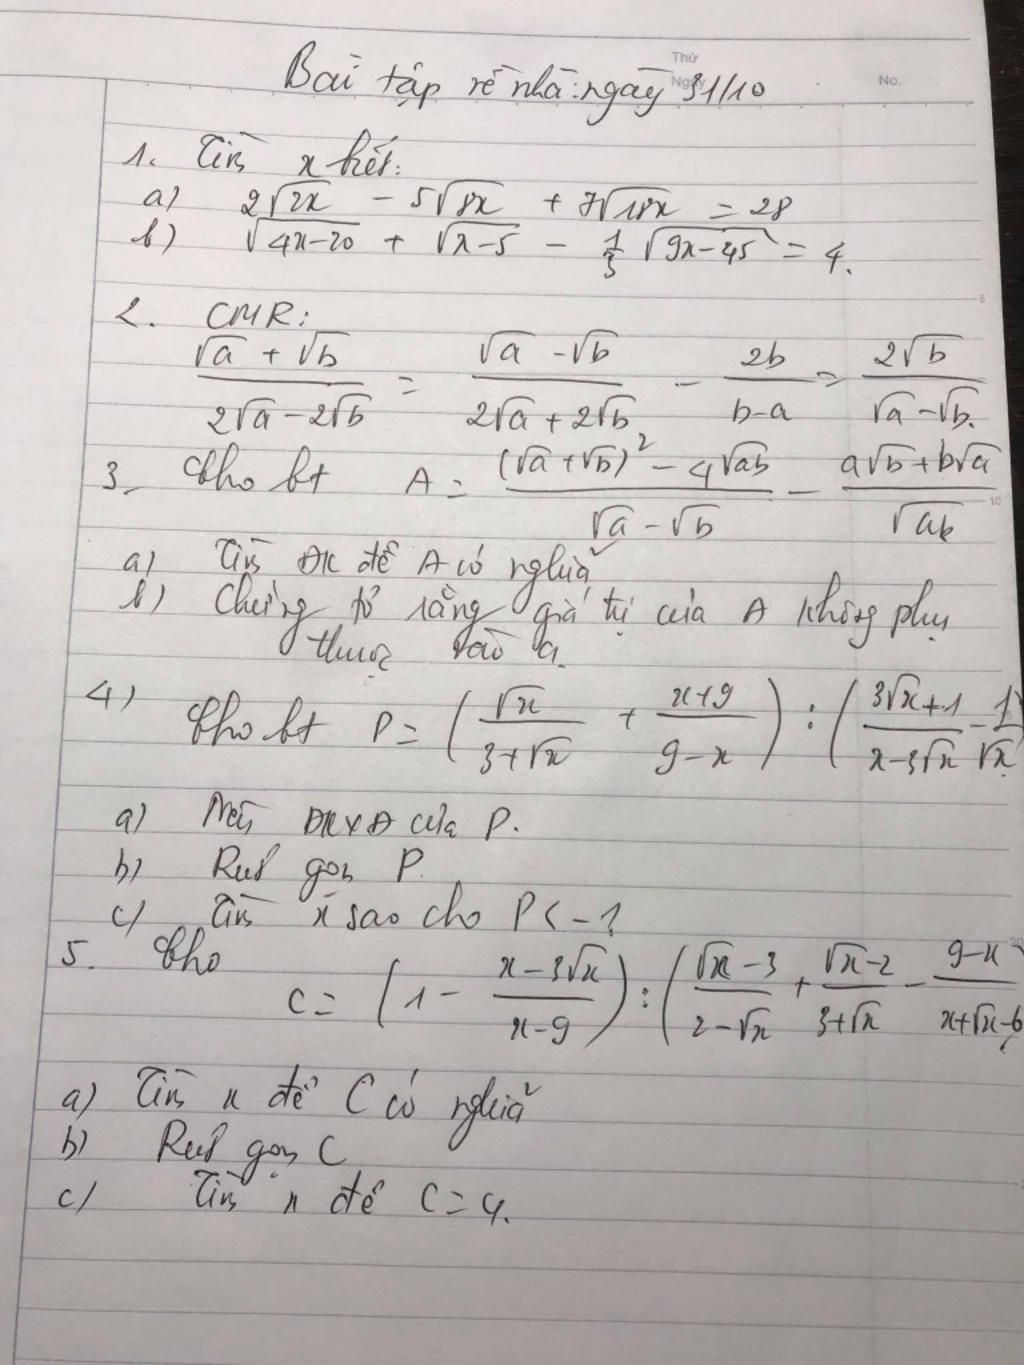 Thứ
Ngày
No.
Bài tập về nhà: ngày 31/10
1. Tìm x biết:
a) 2√2x - 5√8x + 7√18x = 28
b) √4x-20 + √x-5 - 1/3 √9x-45 = 4.
2. CMR:
(√a + √b)/(2√a - 2√b) = (√a - √b)/(2√a + 2√b) - 2b/(b-a) = 2√b/(√a - √b).
3. Cho bt A = ((√a + √b)² - 4√ab)/(√a - √b) - (a√b + b√a)/√ab
a) Tìm ĐK để A có nghĩa
b) Chứng tỏ rằng giá trị của A không phụ
thuộc vào a.
4) Cho bt P = (√x/(3+√x) + (x+9)/(9-x)) : ((3√x+1)/(x-3√x) - 1/√x)
a) Nêu ĐKXĐ của P.
b) Rút gọn P.
c) Tìm x sao cho P < -1
5. Cho
C = (1 - (x-3√x)/(x-9)) : ((√x-3)/(2-√x) + (√x-2)/(3+√x) - (9-x)/(x+√x-6)
a) Tìm x để C có nghĩa
b) Rút gọn C
c) Tìm x để C = 4.